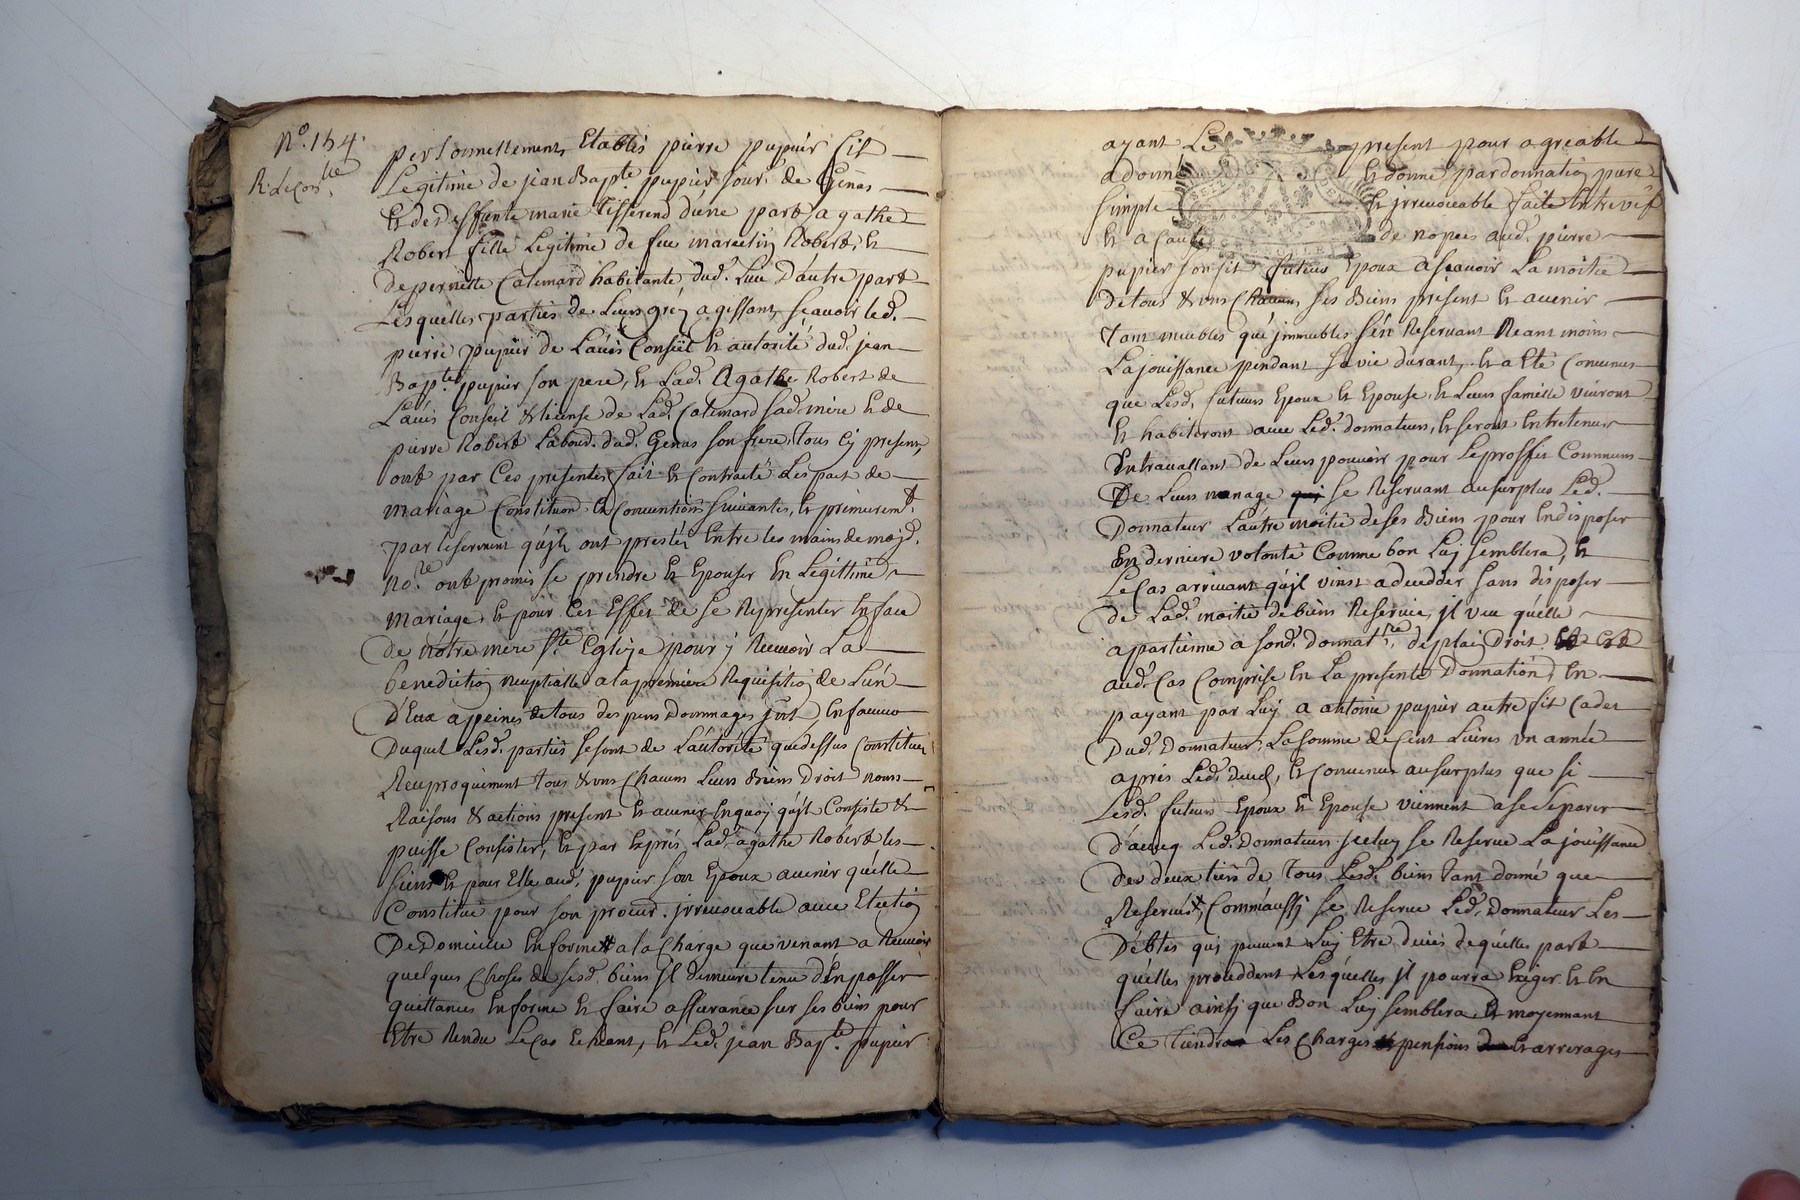 N.o 154.
R. le con.lle
personnellement Etablis pierre pupier fils
Legitime de jean Bap.te pupier jour. de Genas
Et de deffunte marie Tisserend d'une part agathe
Robert fille Legitime de feu marcelin Robert, Et
de pernette Catemard habitante dud. Lieu D'autre part
Lesquelles parties de Leurs gréz agissant, scavoir led.
pierre pupier de L'avis Conseil Et autorité dud. jean
Bap.te pupier son pere, Et Lad. Agathe Robert de
L'avis Conseil & license de Lad. Catemard sad. mère Et de
pierre Robert Labour. dud. Genas son frere, tous Cy present,
ont par Ces presentes fait Et Contracté Les pact de
mariage Constitution Et Conventions Suivantes, Et primurem.t
par le serment qu'ils ont prestéz Entre les mains de moyd.
no.re ont promis se prendre Et Epouser En Legittime
mariage Et pour Cet Effet de se Representer En face
De nôtre mere s.te Eglize pour y Recevoir La
benediction nuptialle a la première Requisition de L'un
D'Eux a peines de tous despens Dommages jnt. En faveur
Duquel Lesd. parties se sont de L'autorité que dessus Constitué
Reciproquement tous & uns Chacuns Leurs Biens Droit noms
Raisons & actions present Et avenir En quoy qu'jls Consiste &
puisse Consister, Et par Exprés Lad. agathe Robert les
siens Et pour Elle aud. pupier son Epoux avenir qu'elle
Constitue pour son procur. jrrevocable avec Election
De Domicille En forme a la Charge que venant a Recevoir
quelques Choses de sesd. biens jl demeure tenu d'En passer
quittances En forme Et faire assurance sur ses biens pour
Etre Rendu Le Cas Echeant, Et Led. jean Bap.te pupier
ayant Le present pour agreable
a donné Et donne par donnation pure
simple Et jrrevocable faite Entre vifs
Et a Cause de nopces aud. pierre
pupier son fils futeur Epoux a scavoir La moitié
de tous & uns Chacuns ses Biens présent Et avenir
Tant meubles que jmmeubles s'en Reservant Neant moins
La jouissance pendant sa vie durant, Et a Eté Convenus
que Lesd. futeurs Epoux Et Epouse, Et Leurs famille vivront
Et habiteront avec Led. donnateur, Et seront Entretenus
En travaillant de Leurs pouvoir pour Le proffit Commun
De Leurs menage se Reservant au surplus Led.
Donnateur L'autre moitié de ses Biens pour En disposer
En derniere volonté Comme bon Luy semblera, Et
Le Cas arrivant qu'jl vinst a decedder sans disposer
de Lad. moitié de biens Reservée, jl veu qu'elle
apartienne a sond. donnat.re de plain Droit Et Est
aud. Cas Comprise En La presente Donnation, En
payant par Luy a antoine pupier autre fils Cadet
Dud. Donnateur La somme de Cent Livres un année
aprés Led. deced, Et Convenus au surplus que si
Lesd. futeurs Epoux Et Epouse viennent a se Separer
D'avecq Led. Donnateur jceluy se Reserve La jouissance
Des deux tiers de Tous Lesd. biens Tant donné que
Reservés, Comm'aussy se Reserve Led. Donnateur Les
Debtes qui peuvent Luy Etre deües de qu'elles part
qu'elles proceddent Lesquelles jl pourra Exiger Et En
faire ainsy que Bon Luy semblera, Et moyennant
Ce Tiendra Les Charges pensions Et arrerages